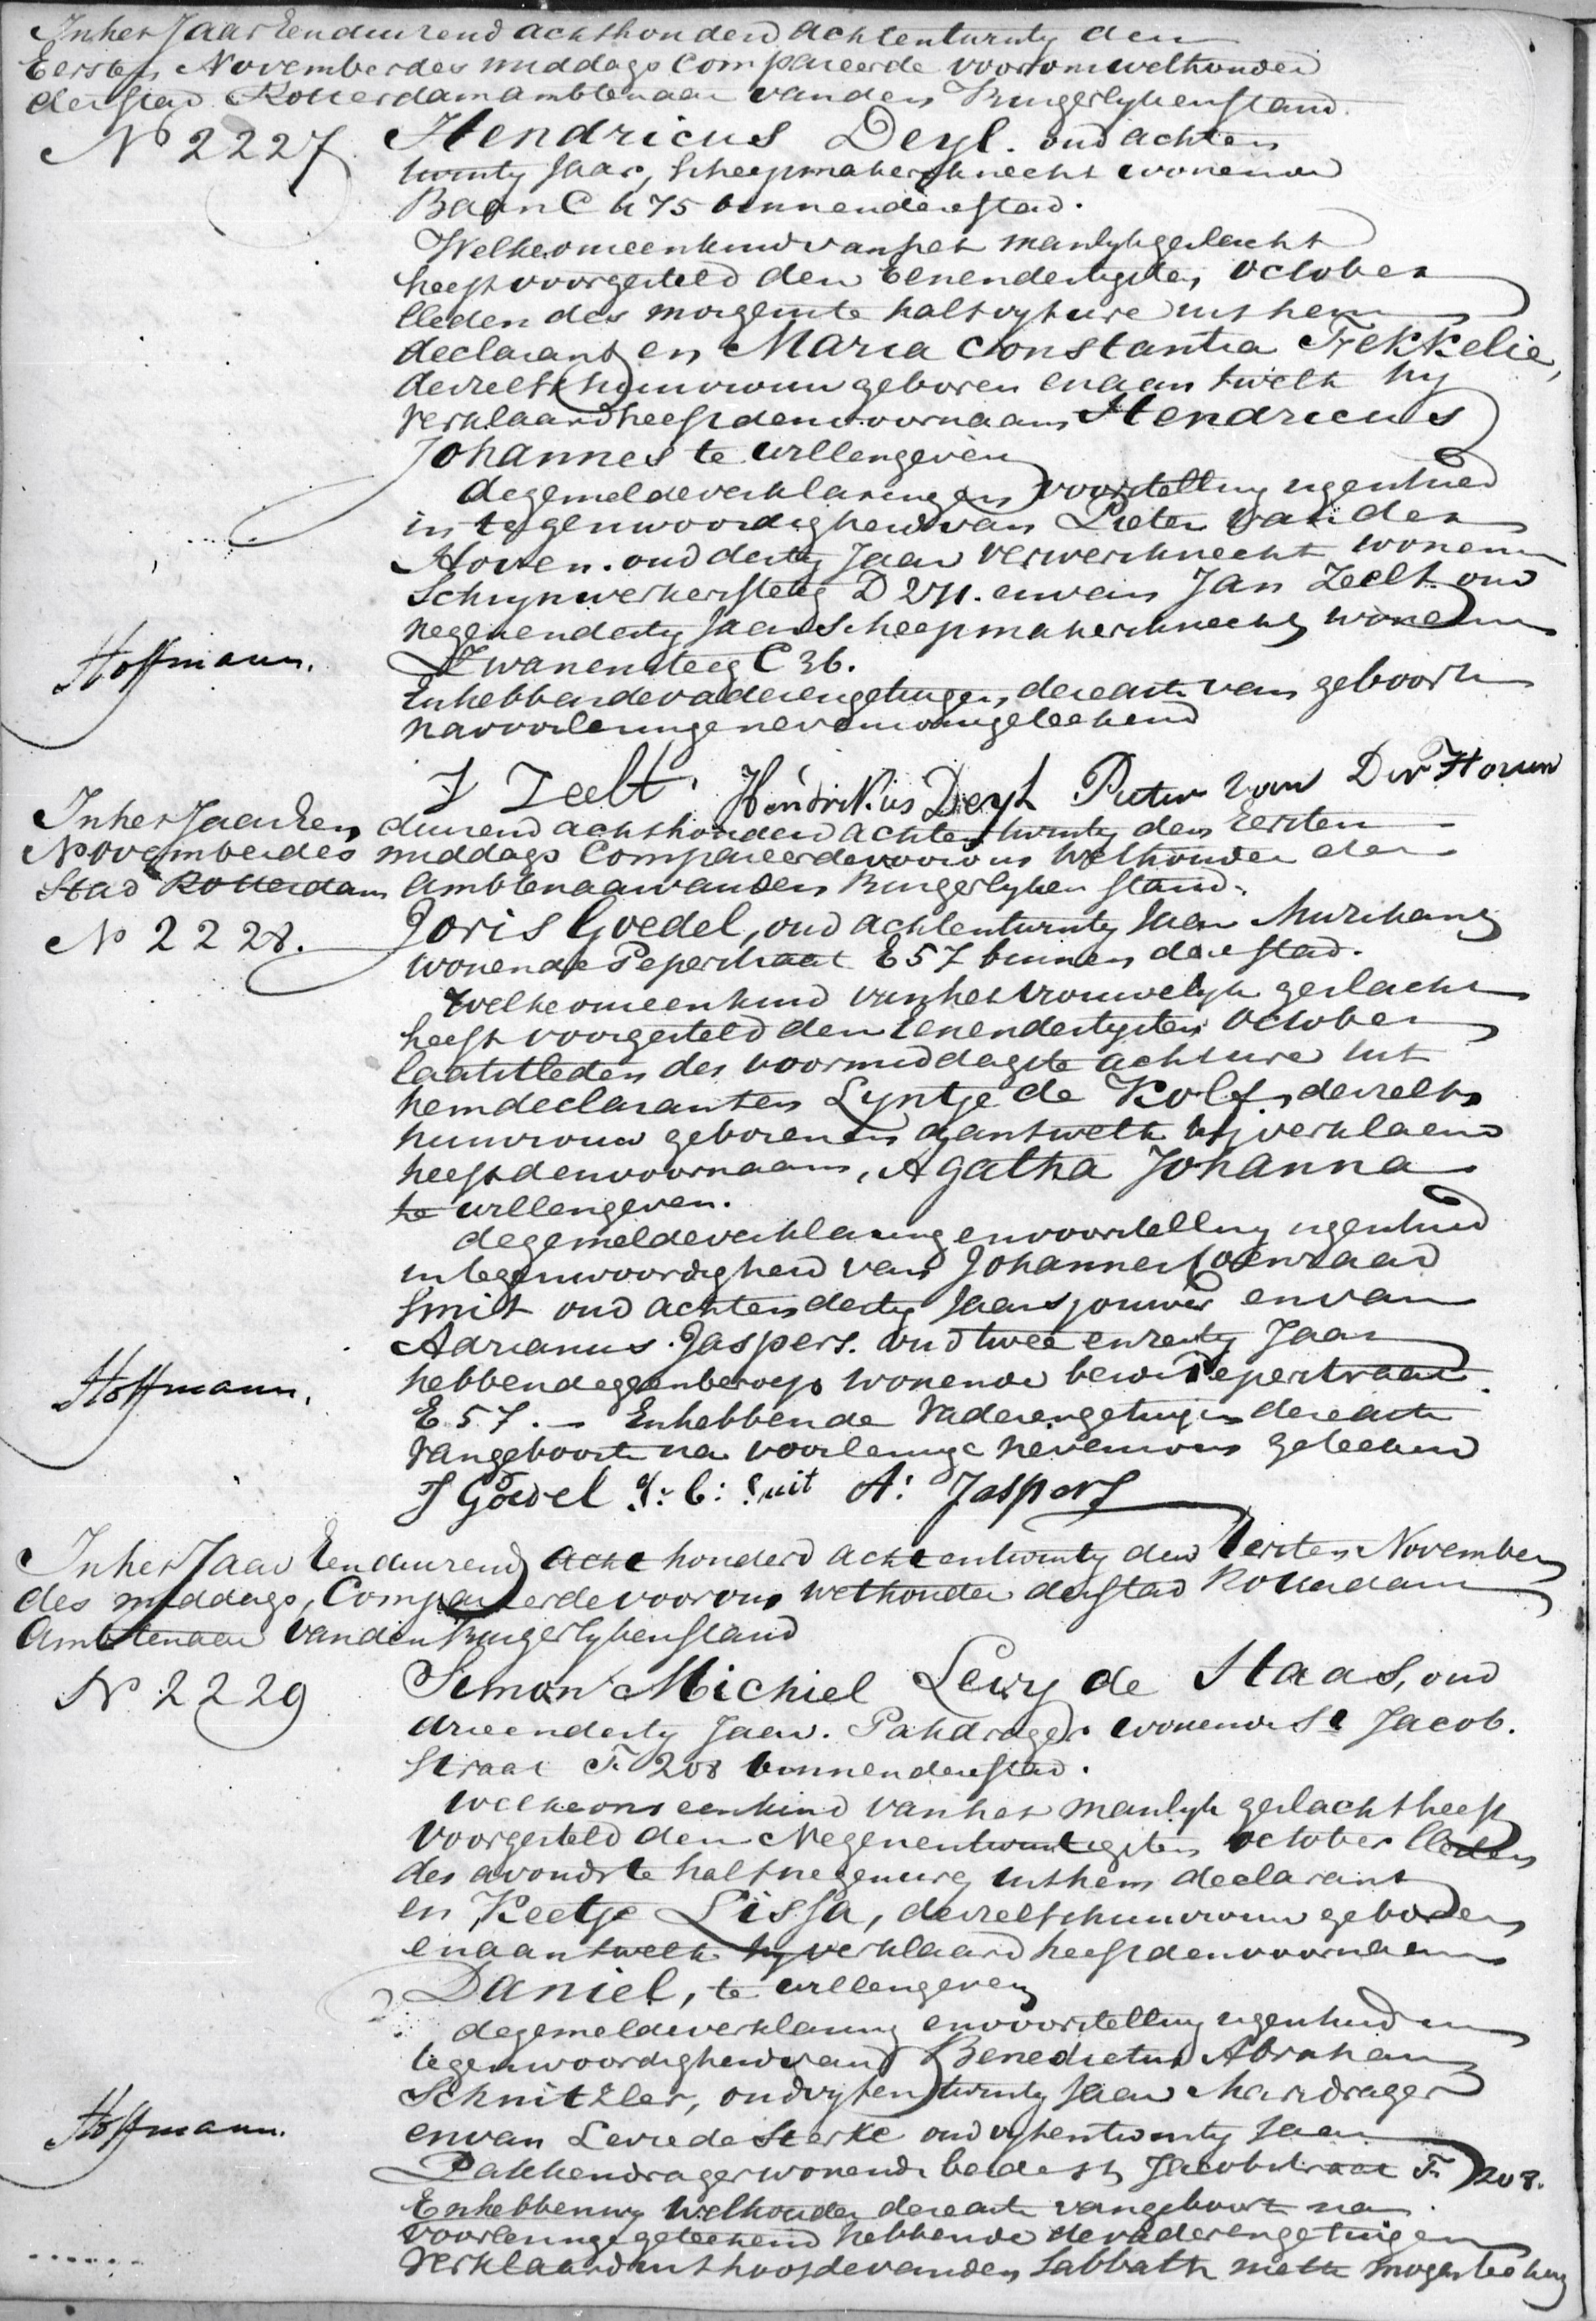 In het Jaar Eenduizend achthonderd achtentwintig den
Eersten November des middags Compareerde voor ons wethouder
der stad Rotterdam ambtenaar van den Burgerlyken stand
N 2227 Hendricus Deyl. oud achten
twintig Jaar, Scheepmakersknecht wonende
Baan C h 75 binnen deze stad.
Welke ons een kind van het manlyk geslacht
heeft voorgesteld den Eenendertigsten October
lleden des morgens te half vyf ure uit hem
declarant en Maria Constantia Trekkelie,
deszelfs huisvrouw geboren en aan twelk hy
verklaard heeft den voornaam Hendricus
Johannes te willen geven
de gemelde verklaring en voorstelling zyn geschied
in tegenwoordigheid van Pieter van der
Hoven. oud dertig Jaar verwersknecht wonende
Schrynwerkersteeg D 271. en van Jan Zeelt oud
negenendertig Jaar Scheepmakersknecht wonende
Zwanensteeg C 36.
En hebben de vader en getuigen, deze acte van geboorte
na voorlezinge nevens ons geteekend
Hoffmann.
J Zeelt. Hendrikus Deyl Pieter van Der Hoven
In het Jaar Een duizend achthonderd achtentwintig den Eersten
November des middags Compareerde voor ons Wethouder der
Stad Rotterdam Ambtenaar van den Burgerlyken stand.
N 2228. Joris Goedel, oud achtentwintig Jaar Muzikant
wonende Peperstraat E 57 binnen deze stad.
Welke ons een kind van het vrouwelyk geslacht
heeft voorgesteld den Eenendertigsten October
laatstleden des voormiddags te acht ure uit
hem declarant en Lyntje de Kolf, deszelfs
huisvrouw geboren en aan twelk hy verklaard
heeft den voornaam, Agatha Johanna
te willen geven.
de gemelde verklaring en voorstelling zyn geschied
in tegenwoordigheid van Johannes Coenraad
Smit oud achtendertig Jaar sjouwer en van
Adrianus Jaspers. oud twee en zestig Jaar
hebbende geen beroep wonende beide Peperstraat
E 57. — En hebben de Vader en getuigen deze acte
van geboorte na voorlezinge nevens ons geteekend
Hoffmann.
J Goedel J: C: Smit A: Jaspers
In het Jaar Eenduizend acht honderd achtentwintig den Eersten November
des middags, Compareerde voor ons wethouder der stad Rotterdam
Ambtenaar van den Burgerlyken stand
N 2229 Simon Michiel Levy de Haas, oud
drieendertig Jaar. Pakdrager wonende St Jacob.
straat F. 208 binnen deze stad.
welke ons een kind van het manlyk geslacht heeft
voorgesteld den Negenentwintigsten October lleden
des avonds te half negen ure, uit hem declarant
en Keetje Lissa, deszelfs huisvrouw geboren
en aan twelk hy verklaard heeft den voornaam
Daniel, te willen geven
de gemelde verklaring en voorstelling zyn geschied in
tegenwoordigheid van Benedictus Abraham
Schnitzler, oud vyfentwintig Jaar Marsdrager
en van Levie de Sterke oud vyfentwintig Jaar
Pakkendrager wonende beide St Jacobstraat F. 208.
En hebben wy Wethouder deze acte van geboorte na
voorlezinge geteekend hebbende de vader en getuigen
verklaard uit hoofde van den Sabbath niet te mogen teekenen
Hoffmann.